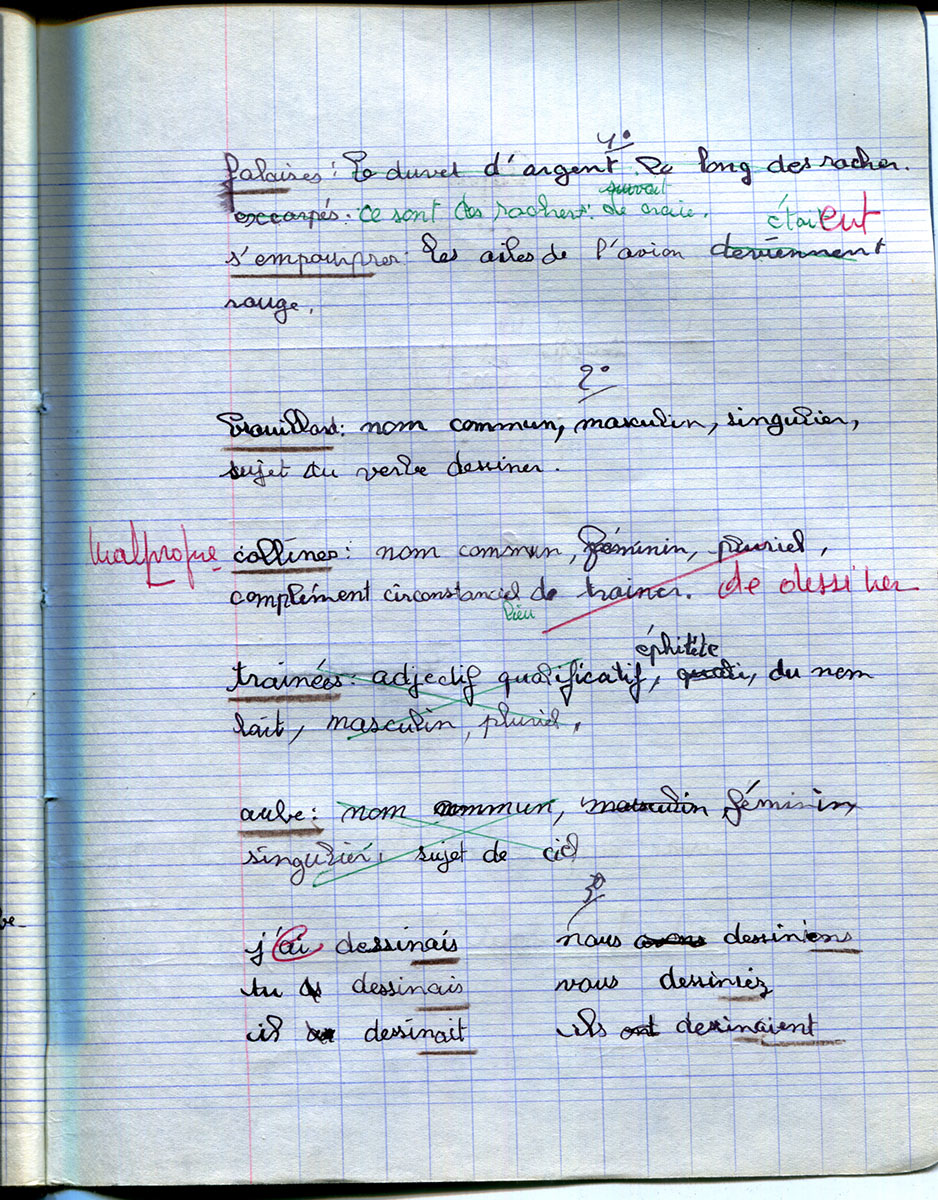 1°
falaises : Le duvet d'argent. Le long des rocher.
suivait
esccarpés : ce sont des rochers : de craie.
étaient
s'empourprer : les ailes de l'avion deviennent
rouge.
2°
brouillard : nom commun, masculin, singulier,
sujet du verbe dessiner.
Malpropre collines : nom commun, féminin, pluriel,
complément circonstanciel de trainer. de dessiner
lieu
éphitète
trainées : adjectif qualificatif, quali, du nom
lait, masculin, pluriel,
aube : nom commun, masculin féminin
singulier, sujet de ciel
3°
j'ai dessinais nous avons dessinions
tu as dessinais vous dessiniez
il a dessinait ils ont dessinaient